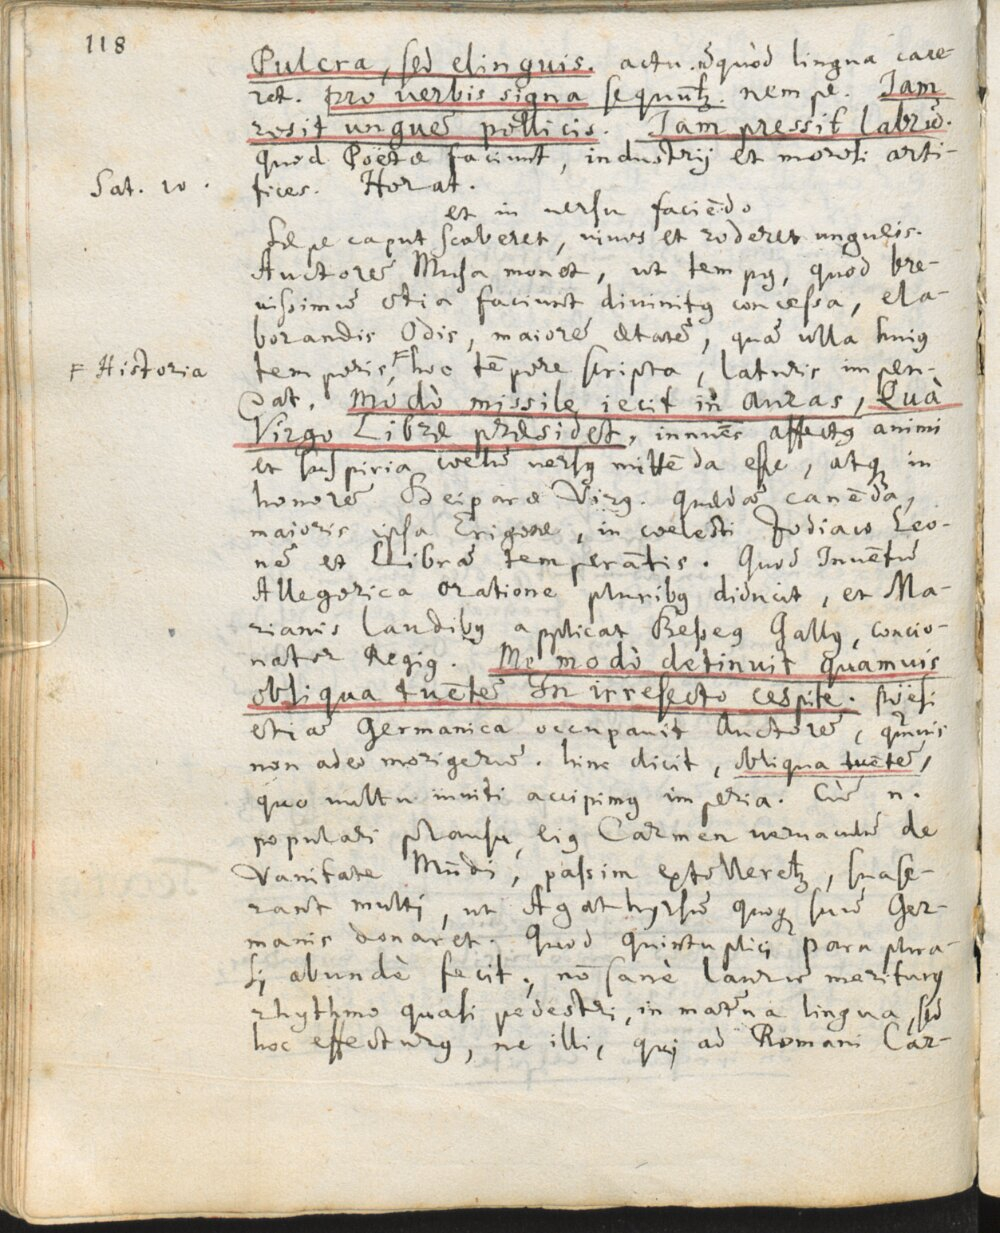 118
Pulcra, sed elinguis. actu. quòd lingua care-
ret. pro verbis signa sequūtꝫ. nempe. Iam
rosit unguē pollicis. Iam pressit labrū.
quod Poëtæ faciunt, industrij et morosi arti-
Sat. 10. fices. Horat.
et in versu faciēdo
Sæpe caput scaberet, vivos et roderet ungueis.
Auctorē Musa monet, ut tempꝰ, quod bre-
vissimū otia faciunt divinitꝰ concessa, ela-
borandis Odis, maiorē ætatē, quā ulla huiꝰ
F Historia temporis, F hoc tēpore scripta, laturis impen-
dat. Modò missile iecit in auras, Quà
Virgo Libræ præsidet, innuēs affectꝰ animi
et suspiria coelū versꝰ mittēda esse, atqꝫ in
honorē Deiparæ Virg. quædā canēda,
maioris ipsa Erigone, in coelesti Zodiaco Leo-
nē et Librā temperātis. Quod Inuētū
Allegorica oratione pluribꝰ diducit, et Ma-
rianis laudibꝰ applicat Besseꝰ Gallꝰ, concio-
nator Regiꝰ. Me modò detinuit quamuis
obliqua tuētē In irrefecto cespite. Poësi
etiā Germanica occupauit Auctorē, quāuis
non adeo morigerū. hinc dicit, obliqua tuētē,
quo vultu inviti accipimꝰ imperia. Cū n.
populari plausu, eiꝰ Carmen vernaculū de
Vanitate Mūdi, passim extolleretꝫ, suase-
rant multi, ut Agathyrsū quoqꝫ suū Ger-
manis donaret. Quod quintuplici paraphra-
si abundè fecit, nō sanè laurū meriturꝰ
rhythmo quasi pedestri, in materna lingua, sed
hoc effecturꝰ, ne illi, qui ad Romani Car-